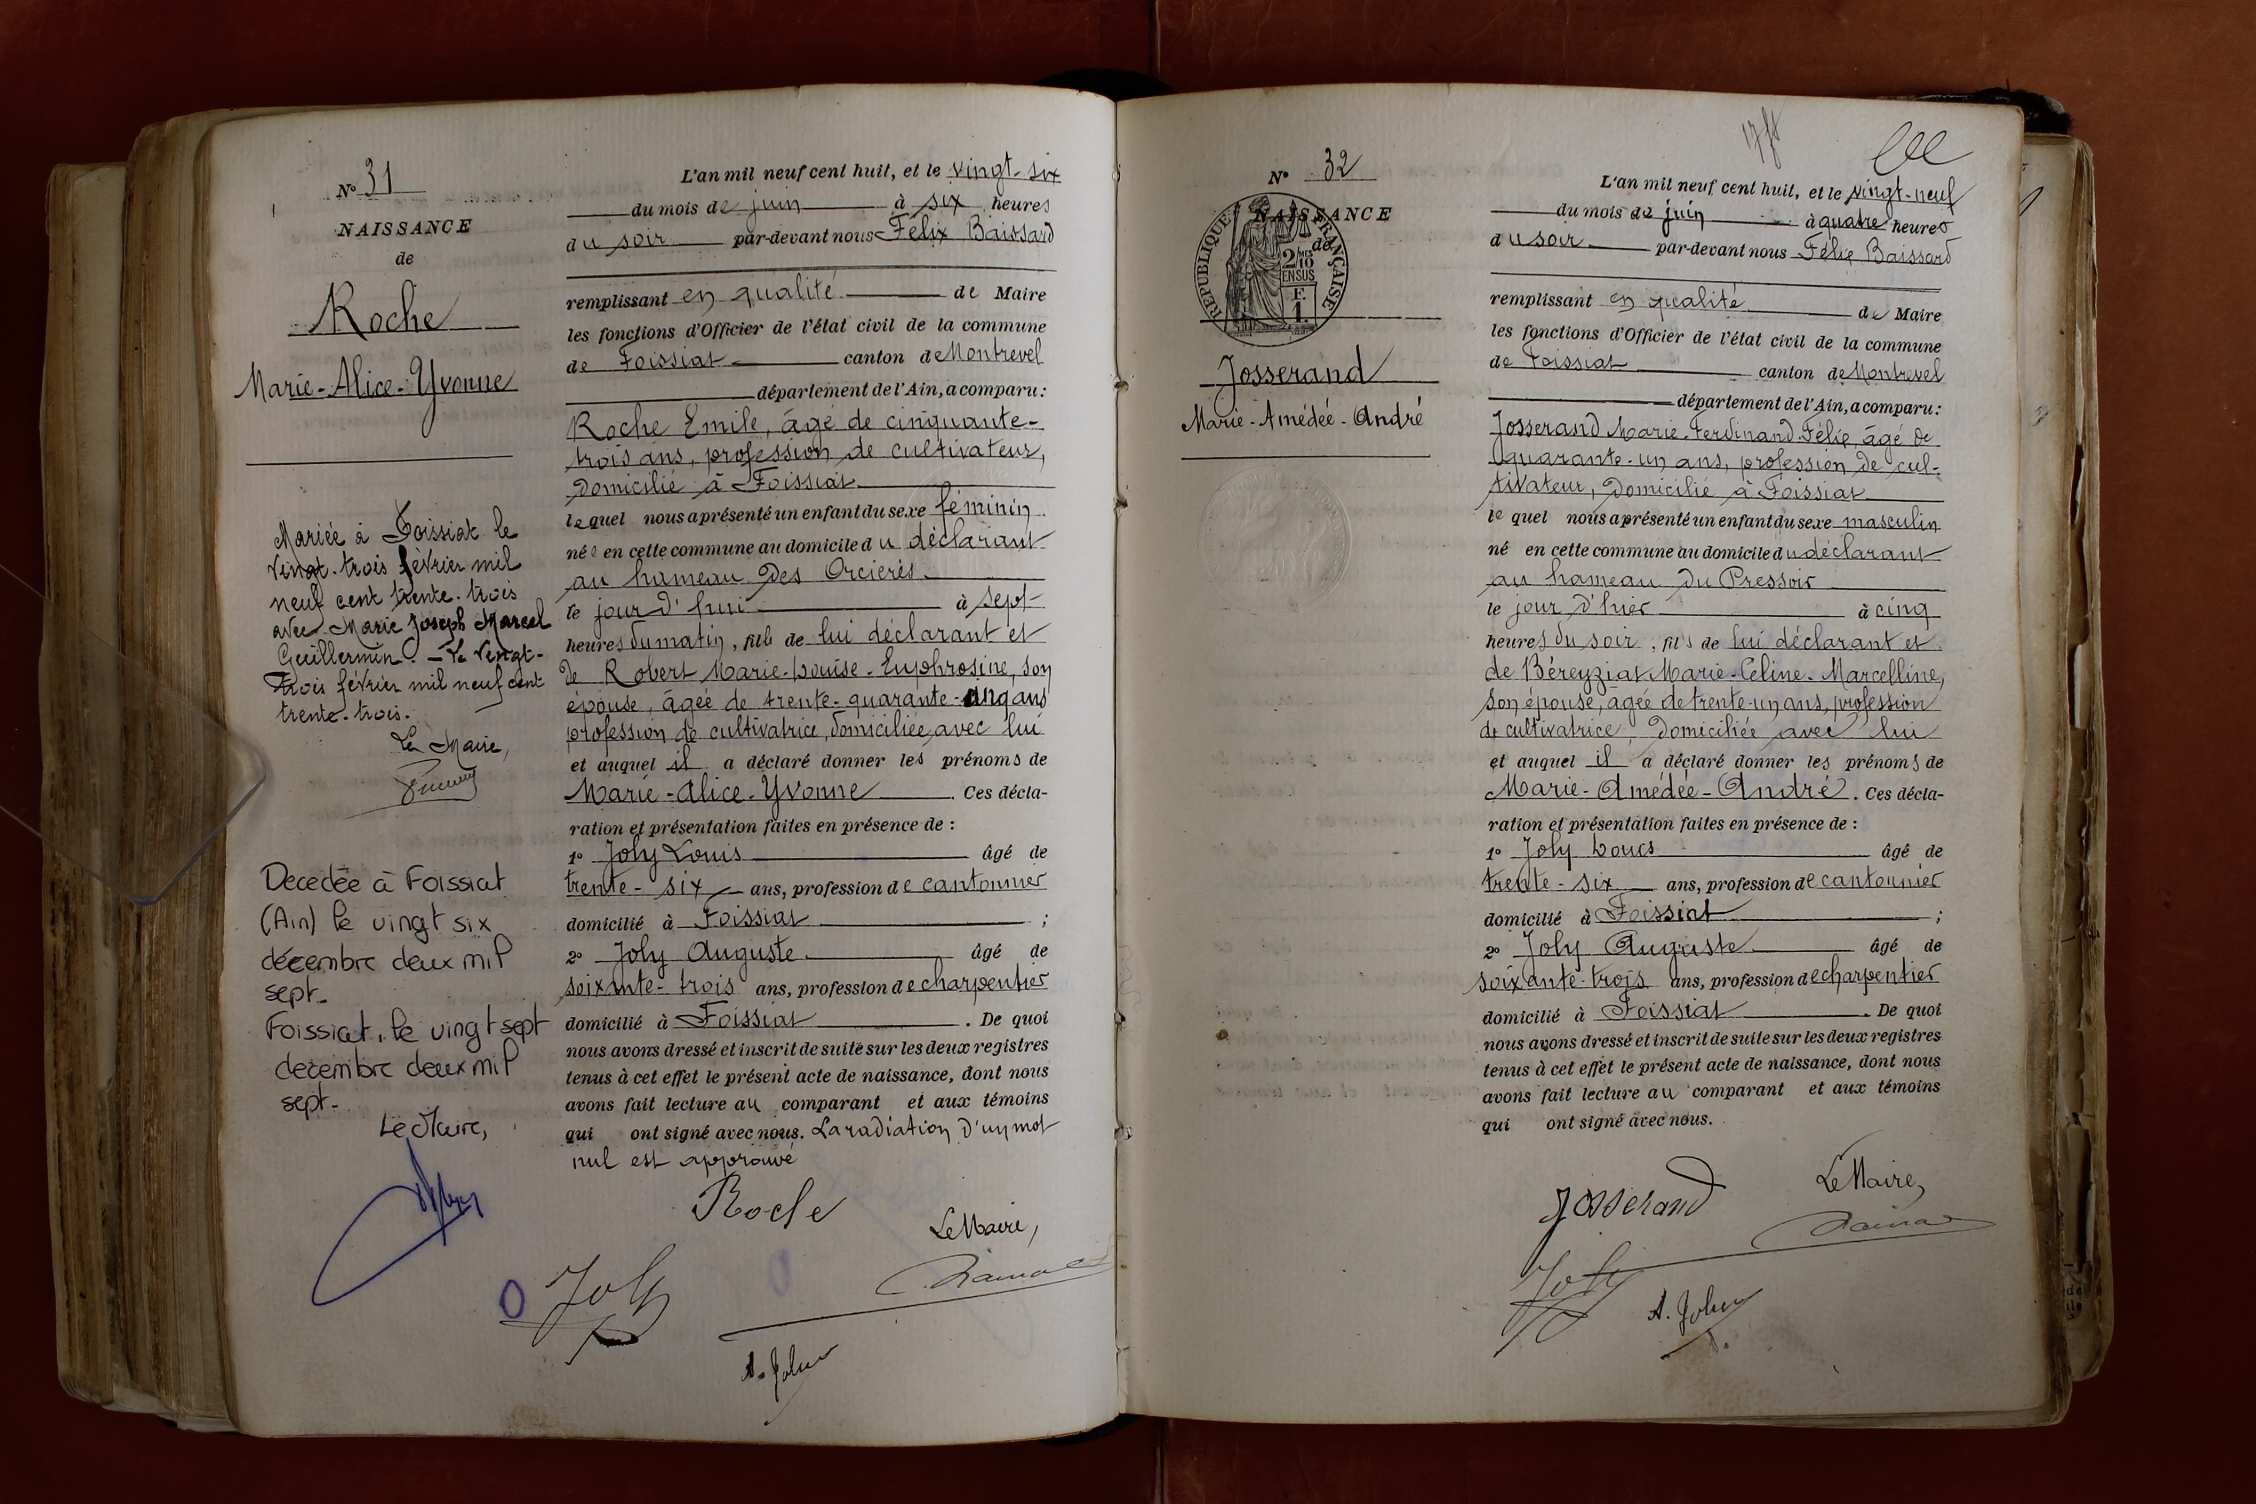 N° 31
NAISSANCE
de
Roche
Marie-Alice-Yvonne
Mariée à Foissiat le
vingt-trois février mil
neuf cent trente-trois
avec Marie Joseph Marcel
Guillermin. - Le vingt-
trois février mil neuf cent
trente-trois.
Le Maire,
Décédée à Foissiat
(Ain) le vingt six
décembre deux mil
sept.
Foissiat, le vingt sept
décembre deux mil
sept.
Le Maire,
L'an mil neuf cent huit, et le vingt-six
du mois de juin à six heures
du soir par-devant nous Félix Baissard
remplissant en qualité de Maire
les fonctions d'Officier de l'état civil de la commune
de Foissiat canton de Montrevel
département de l'Ain, a comparu:
Roche Emile, âgé de cinquante-
trois ans, profession de cultivateur,
domicilié à Foissiat
lequel nous a présenté un enfant du sexe féminin
née en cette commune au domicile du déclarant
au hameau des Orcières
le jour d'hui à sept
heures du matin, fille de lui déclarant et
de Robert Marie-Louise-Euphrosine, son
épouse, âgée de trente-quarante-cinq ans
profession de cultivatrice, domiciliée avec lui
et auquel il a déclaré donner les prénoms de
Marie-Alice-Yvonne. Ces décla-
ration et présentation faites en présence de :
1° Joly Louis âgé de
trente-six ans, profession de cantonnier
domicilié à Foissiat ;
2° Joly Auguste âgé de
soixante-trois ans, profession de charpentier
domicilié à Foissiat. De quoi
nous avons dressé et inscrit de suite sur les deux registres
tenus à cet effet le présent acte de naissance, dont nous
avons fait lecture au comparant et aux témoins
qui ont signé avec nous. La radiation d'un mot
nul est approuvé
Roche
Le Maire,
Joly
A. Joly
N° 32
NAISSANCE
de
RÉPUBLIQUE FRANÇAISE
2/10
EN SUS
F.
1.
Josserand
Marie-Amédée-André
L'an mil neuf cent huit, et le vingt-neuf
du mois de juin à quatre heures
du soir par-devant nous Félix Baissard
remplissant en qualité de Maire
les fonctions d'Officier de l'état civil de la commune
de Foissiat canton de Montrevel
département de l'Ain, a comparu:
Josserand Marie-Ferdinand-Félix, âgé de
quarante-un ans, profession de cul-
tivateur, domicilié à Foissiat
le quel nous a présenté un enfant du sexe masculin
né en cette commune au domicile du déclarant
au hameau du Pressoir
le jour d'hier à cinq
heures du soir, fils de lui déclarant et
de Béreyziat Marie-Céline-Marcelline,
son épouse, âgée de trente-un ans, profession
de cultivatrice, domiciliée avec lui
et auquel il a déclaré donner les prénoms de
Marie-Amédée-André. Ces décla-
ration et présentation faites en présence de :
1° Joly Louis âgé de
trente-six ans, profession de cantonnier
domicilié à Foissiat ;
2° Joly Auguste âgé de
soixante-trois ans, profession de charpentier
domicilié à Foissiat. De quoi
nous avons dressé et inscrit de suite sur les deux registres
tenus à cet effet le présent acte de naissance, dont nous
avons fait lecture au comparant et aux témoins
qui ont signé avec nous.
Josserand
Le Maire,
Joly
A. Joly